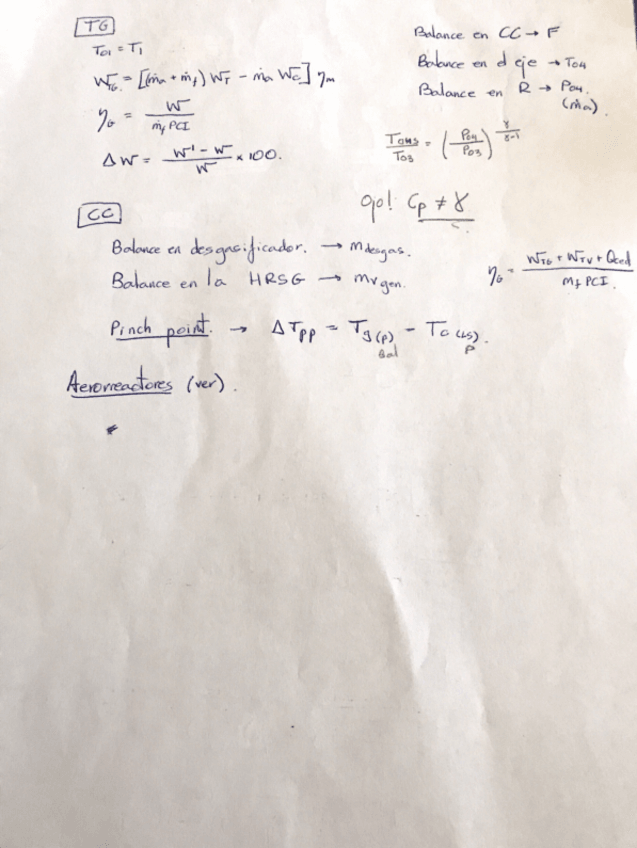 TG
T01 = T1
WTG = [(ṁa + ṁf) WT - ṁa Wc] ηm
ηG = W / ṁf PCI
ΔW = (W' - W) / W × 100.
Balance en CC → F
Balance en el eje → T04
Balance en R → P04.
(ṁa).
T04s / T03 = (P04 / P03)^(γ / γ-1)
ojo! Cp ≠ γ
CC
Balance en desgasificador. → mdesgas.
Balance en la HRSG → mvgen.
ηG = (WTG + WTV + Qced) / mf PCI.
Pinch point. → ΔTpp = Tg(p) - Ta(ls).
sal p
Aerorreactores (ver).